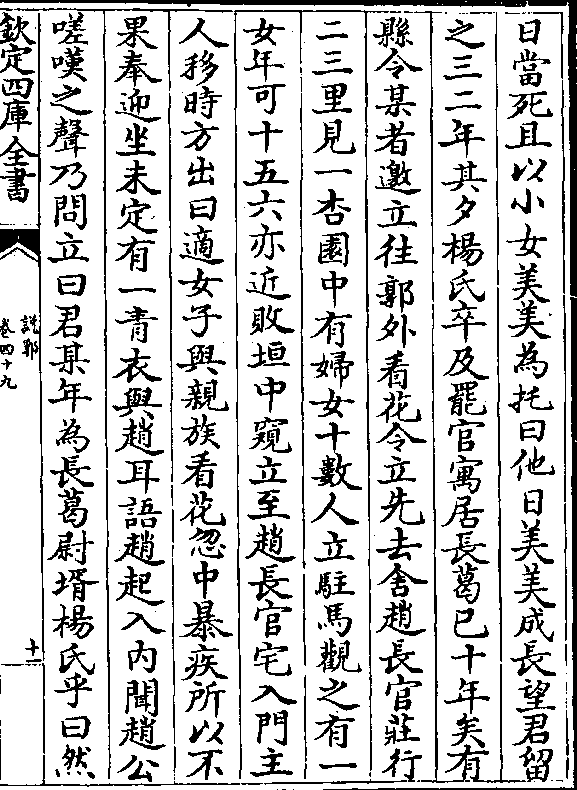 日當死且以小女美美為托曰他日美美成長望君留
之三二年其夕楊氏卒及罷官寓居長葛已十年矣有
縣令某者邀立往郭外看花令立先去舍趙長官莊行
二三里見一杏園中有婦女十數人立駐馬觀之有一
女年可十五六亦近敗垣中窺立至趙長官宅入門主
人移時方出曰適女子與親族看花忽中暴疾所以不
果奉迎坐未定有一青衣與趙耳語趙起入內聞趙公
嗟嘆之聲乃問立曰君某年為長葛尉壻楊氏乎曰然
欽定四庫全書
說郛
卷四十九
十一